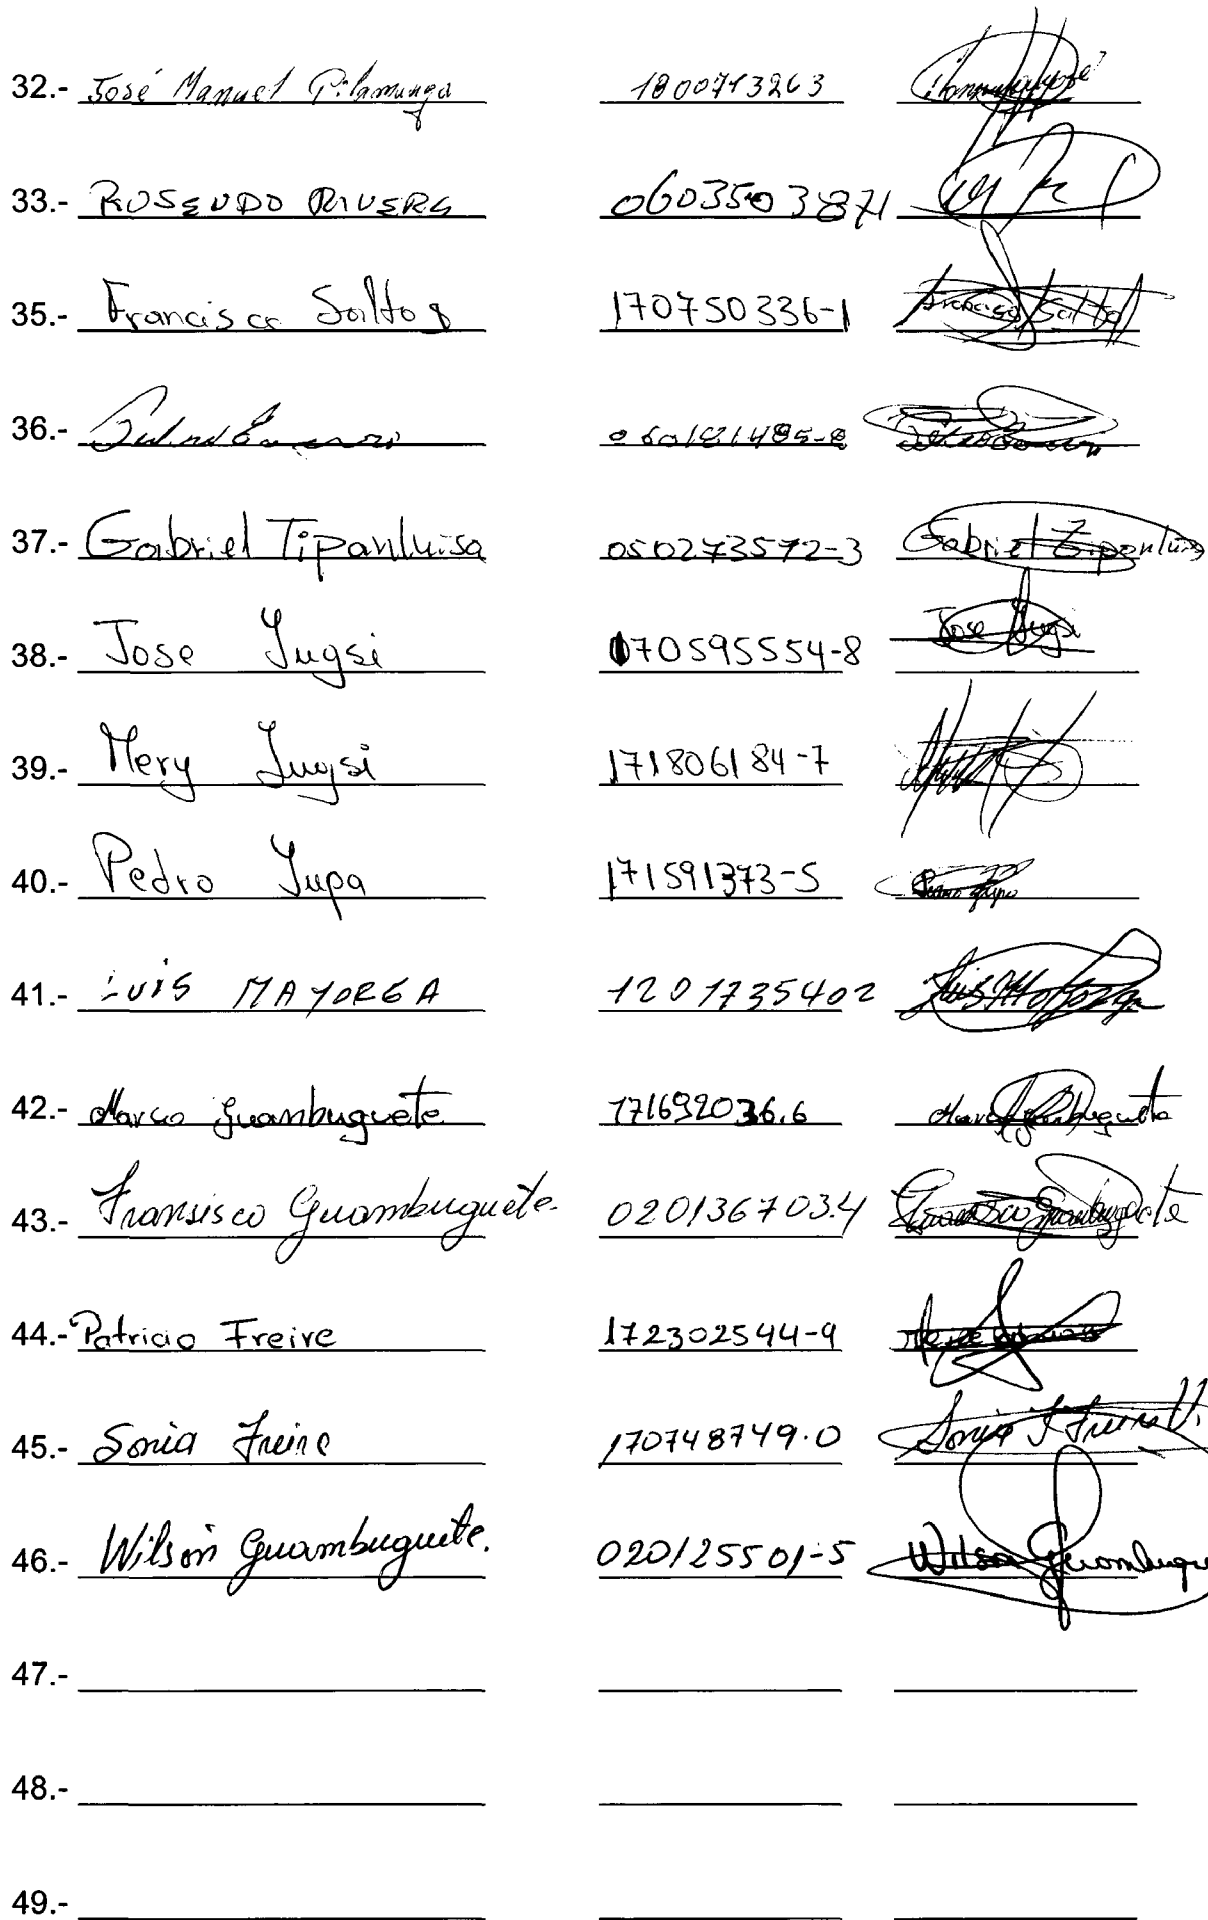 32.- José Manuel Pilamunga 1800713263
33.- ROSENDO RIVERA 0603503871
35.- Francisco Saltos 170750336-1 Francisco Saltos
36.- 060181485-8
37.- Gabriel Tipanluisa 050273572-3 Gabriel Tipanluisa
38.- Jose Yugsi 170595554-8 Jose Yugsi
39.- Mery Yugsi 171806184-7
40.- Pedro Yupa 171591373-5 Pedro Yupa
41.- LUIS MAYORGA 1201735402 Luis Mayorga
42.- Marco Guambuguete 171692036.6 Marco Guambuguete
43.- Fransisco Guambuguete. 020136703.4 Fransisco Guambuguete
44.- Patricio Freire 172302544-9
45.- Sonia Freire 170748749.0 Sonia Freire
46.- Wilson Guambuguete. 020125501-5 Wilson Guambugue
47.-
48.-
49.-